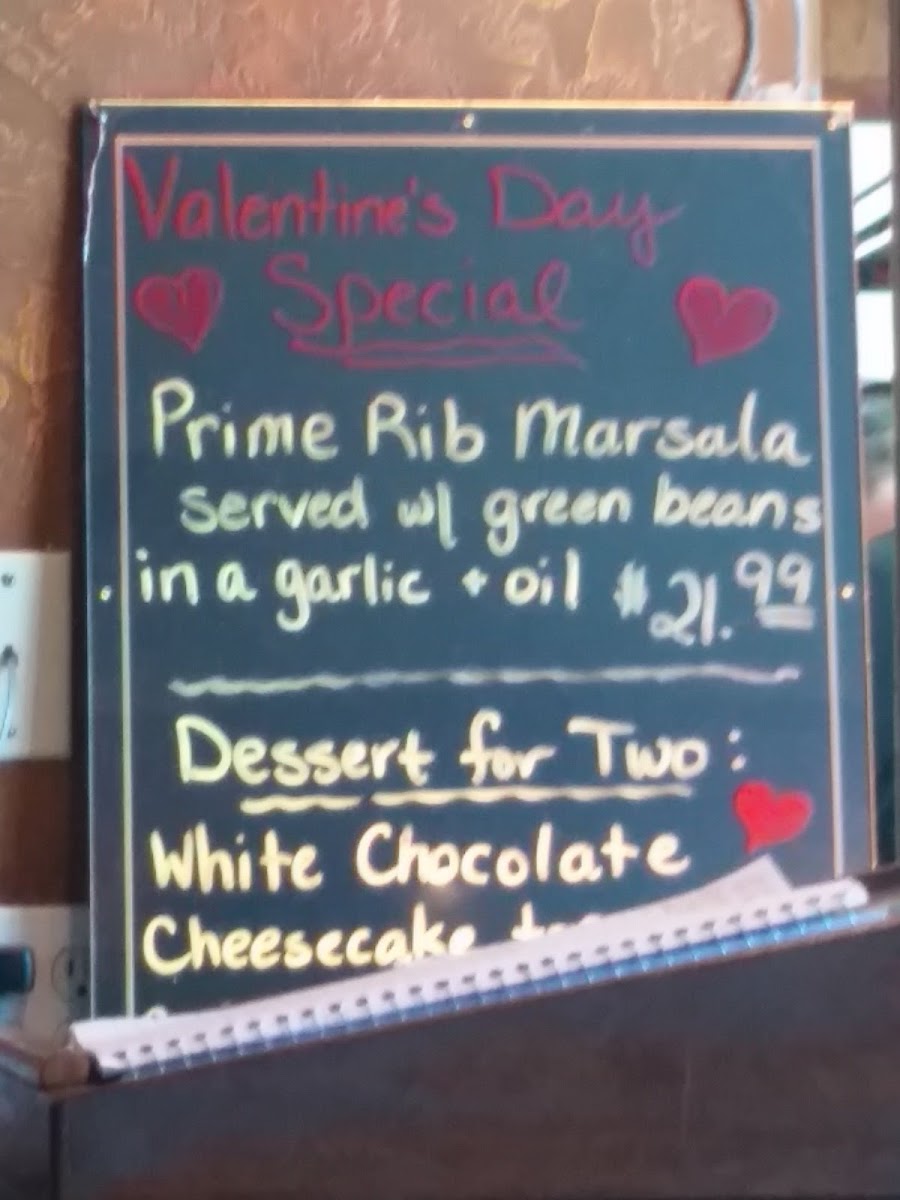 Valentine's Day
Special
Prime Rib Marsala
served w/ green beans
in a garlic + oil $21.99
Dessert for Two:
White Chocolate
Cheesecake